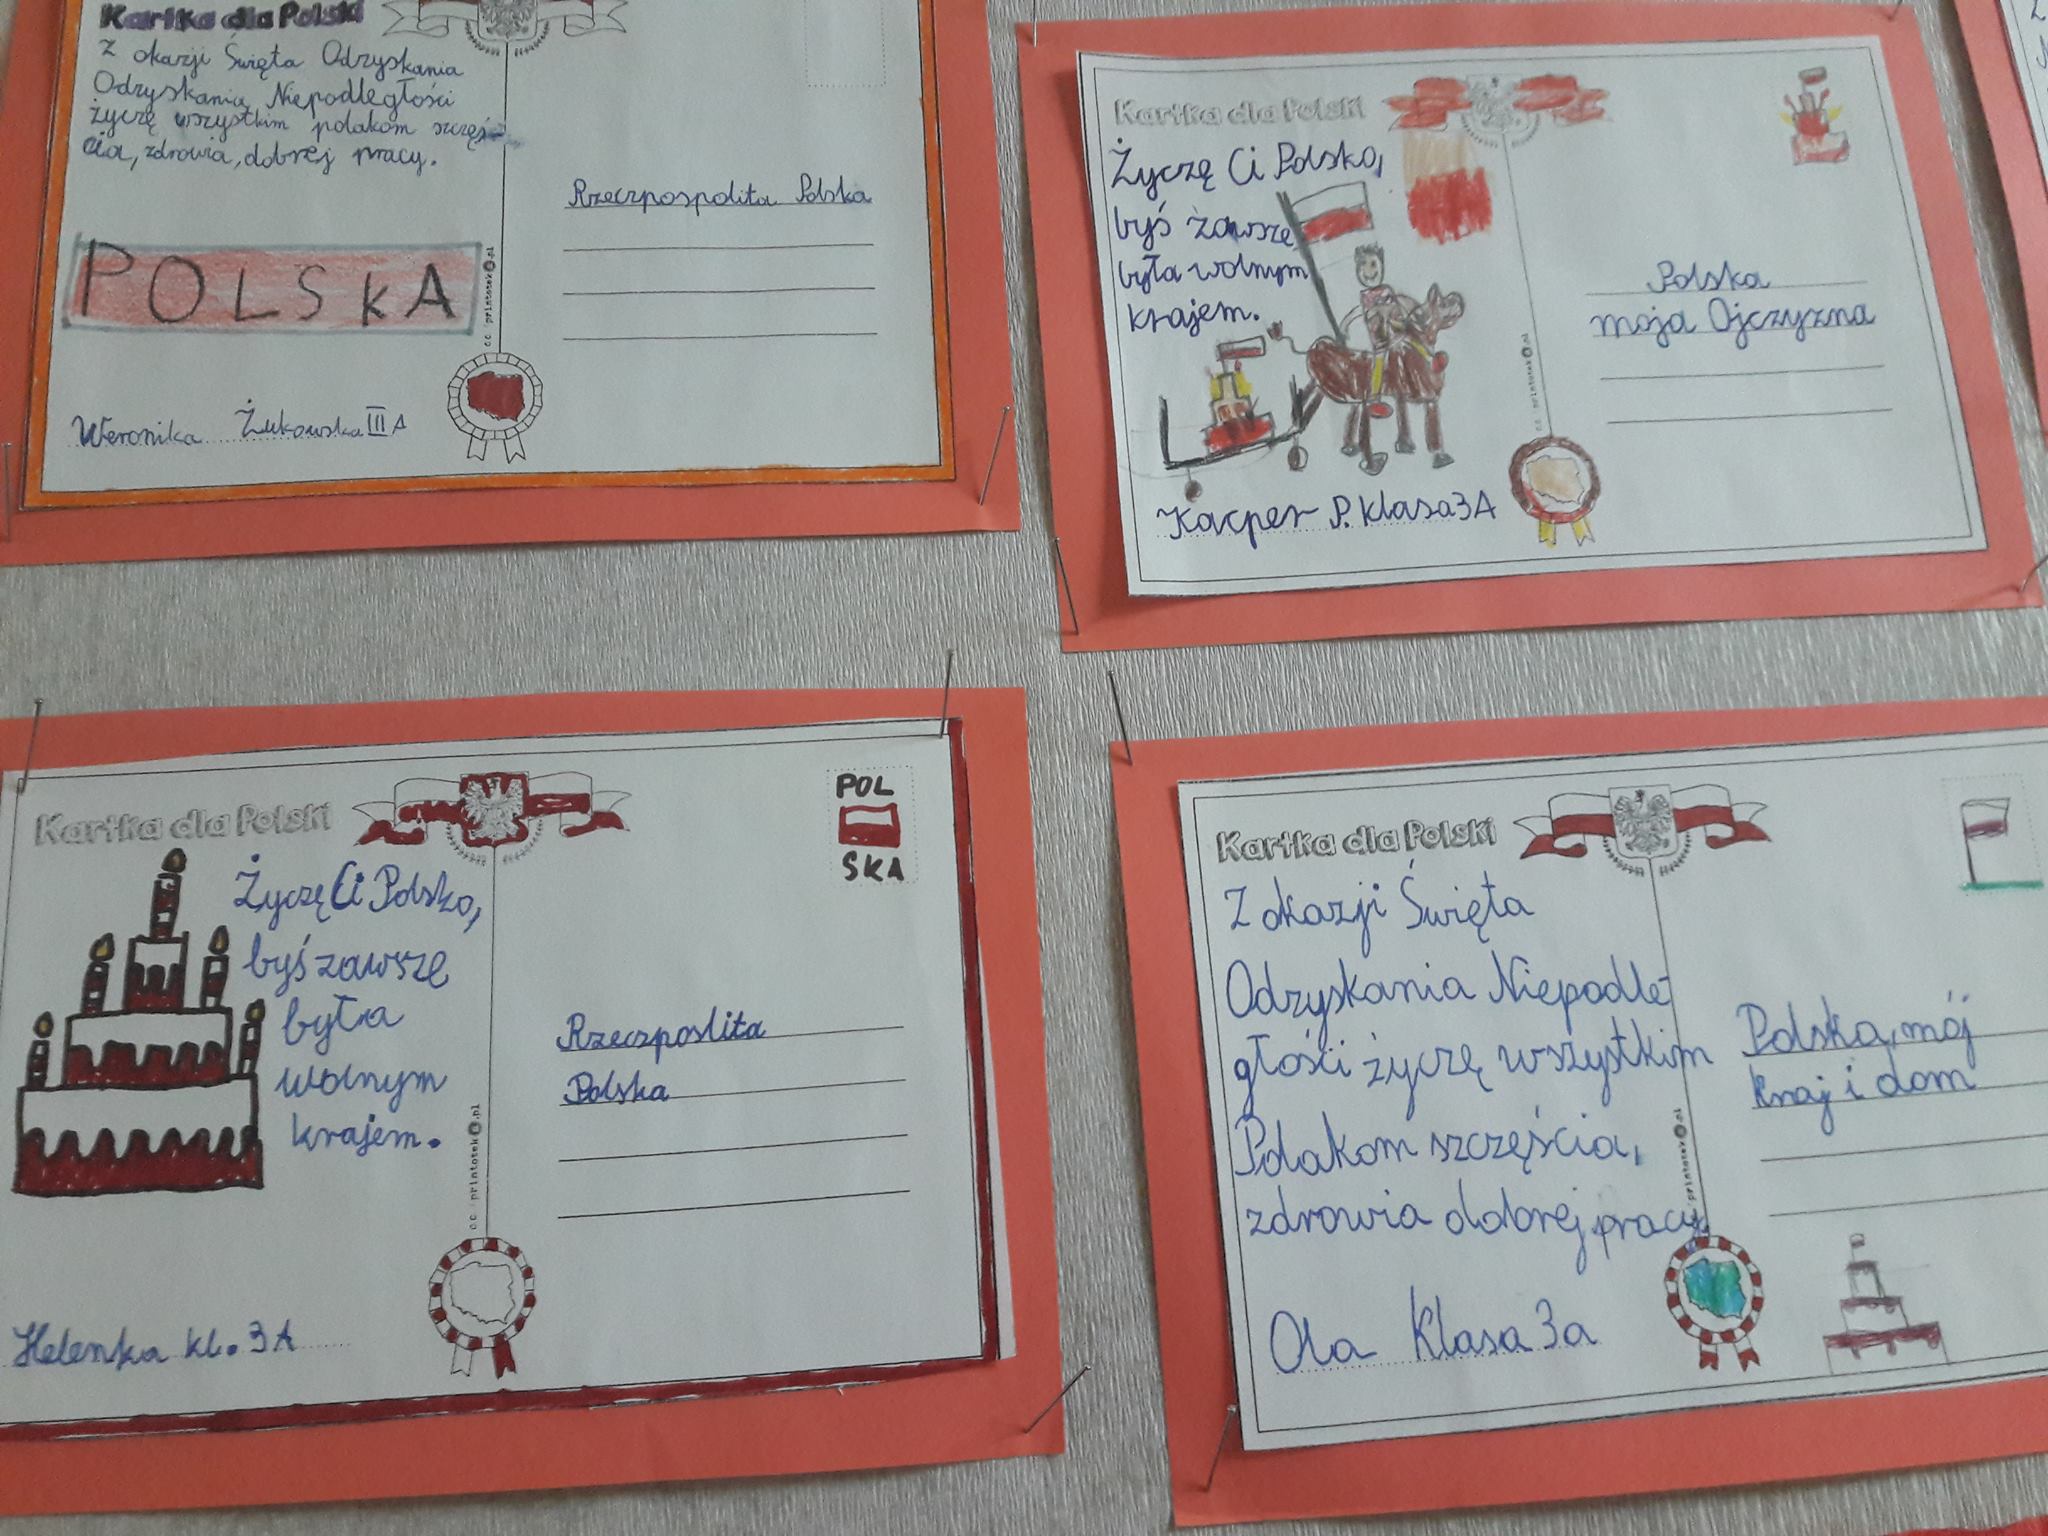 Kartka dla Polski
Z okazji Święta Odzyskania
Odzyskania Niepodległości
życzę wszystkim polakom szczęś
cia, zdrowia, dobrej pracy.
POLSkA
Weronika Żukowska III A
c.c. printotek.pl
Rzeczpospolita Polska
Kartka dla Polski
Życzę Ci Polsko,
byś zawsze
była wolnym
krajem.
Kacper P. klasa 3A
c.c. printotek.pl
Polska
moja Ojczyzna
Kartka dla Polski
Życzę Ci Polsko,
byś zawsze
była
wolnym
krajem.
Helenka kl. 3A
c.c. printotek.pl
POL
SKA
Rzeczposlita
Polska
Kartka dla Polski
Z okazji Święta
Odzyskania Niepodle-
głości życzę wszystkim
Polakom szczęścia,
zdrowia dobrej pracy
Ola Klasa 3a
c.c. printotek.pl
Polska, mój
kraj i dom